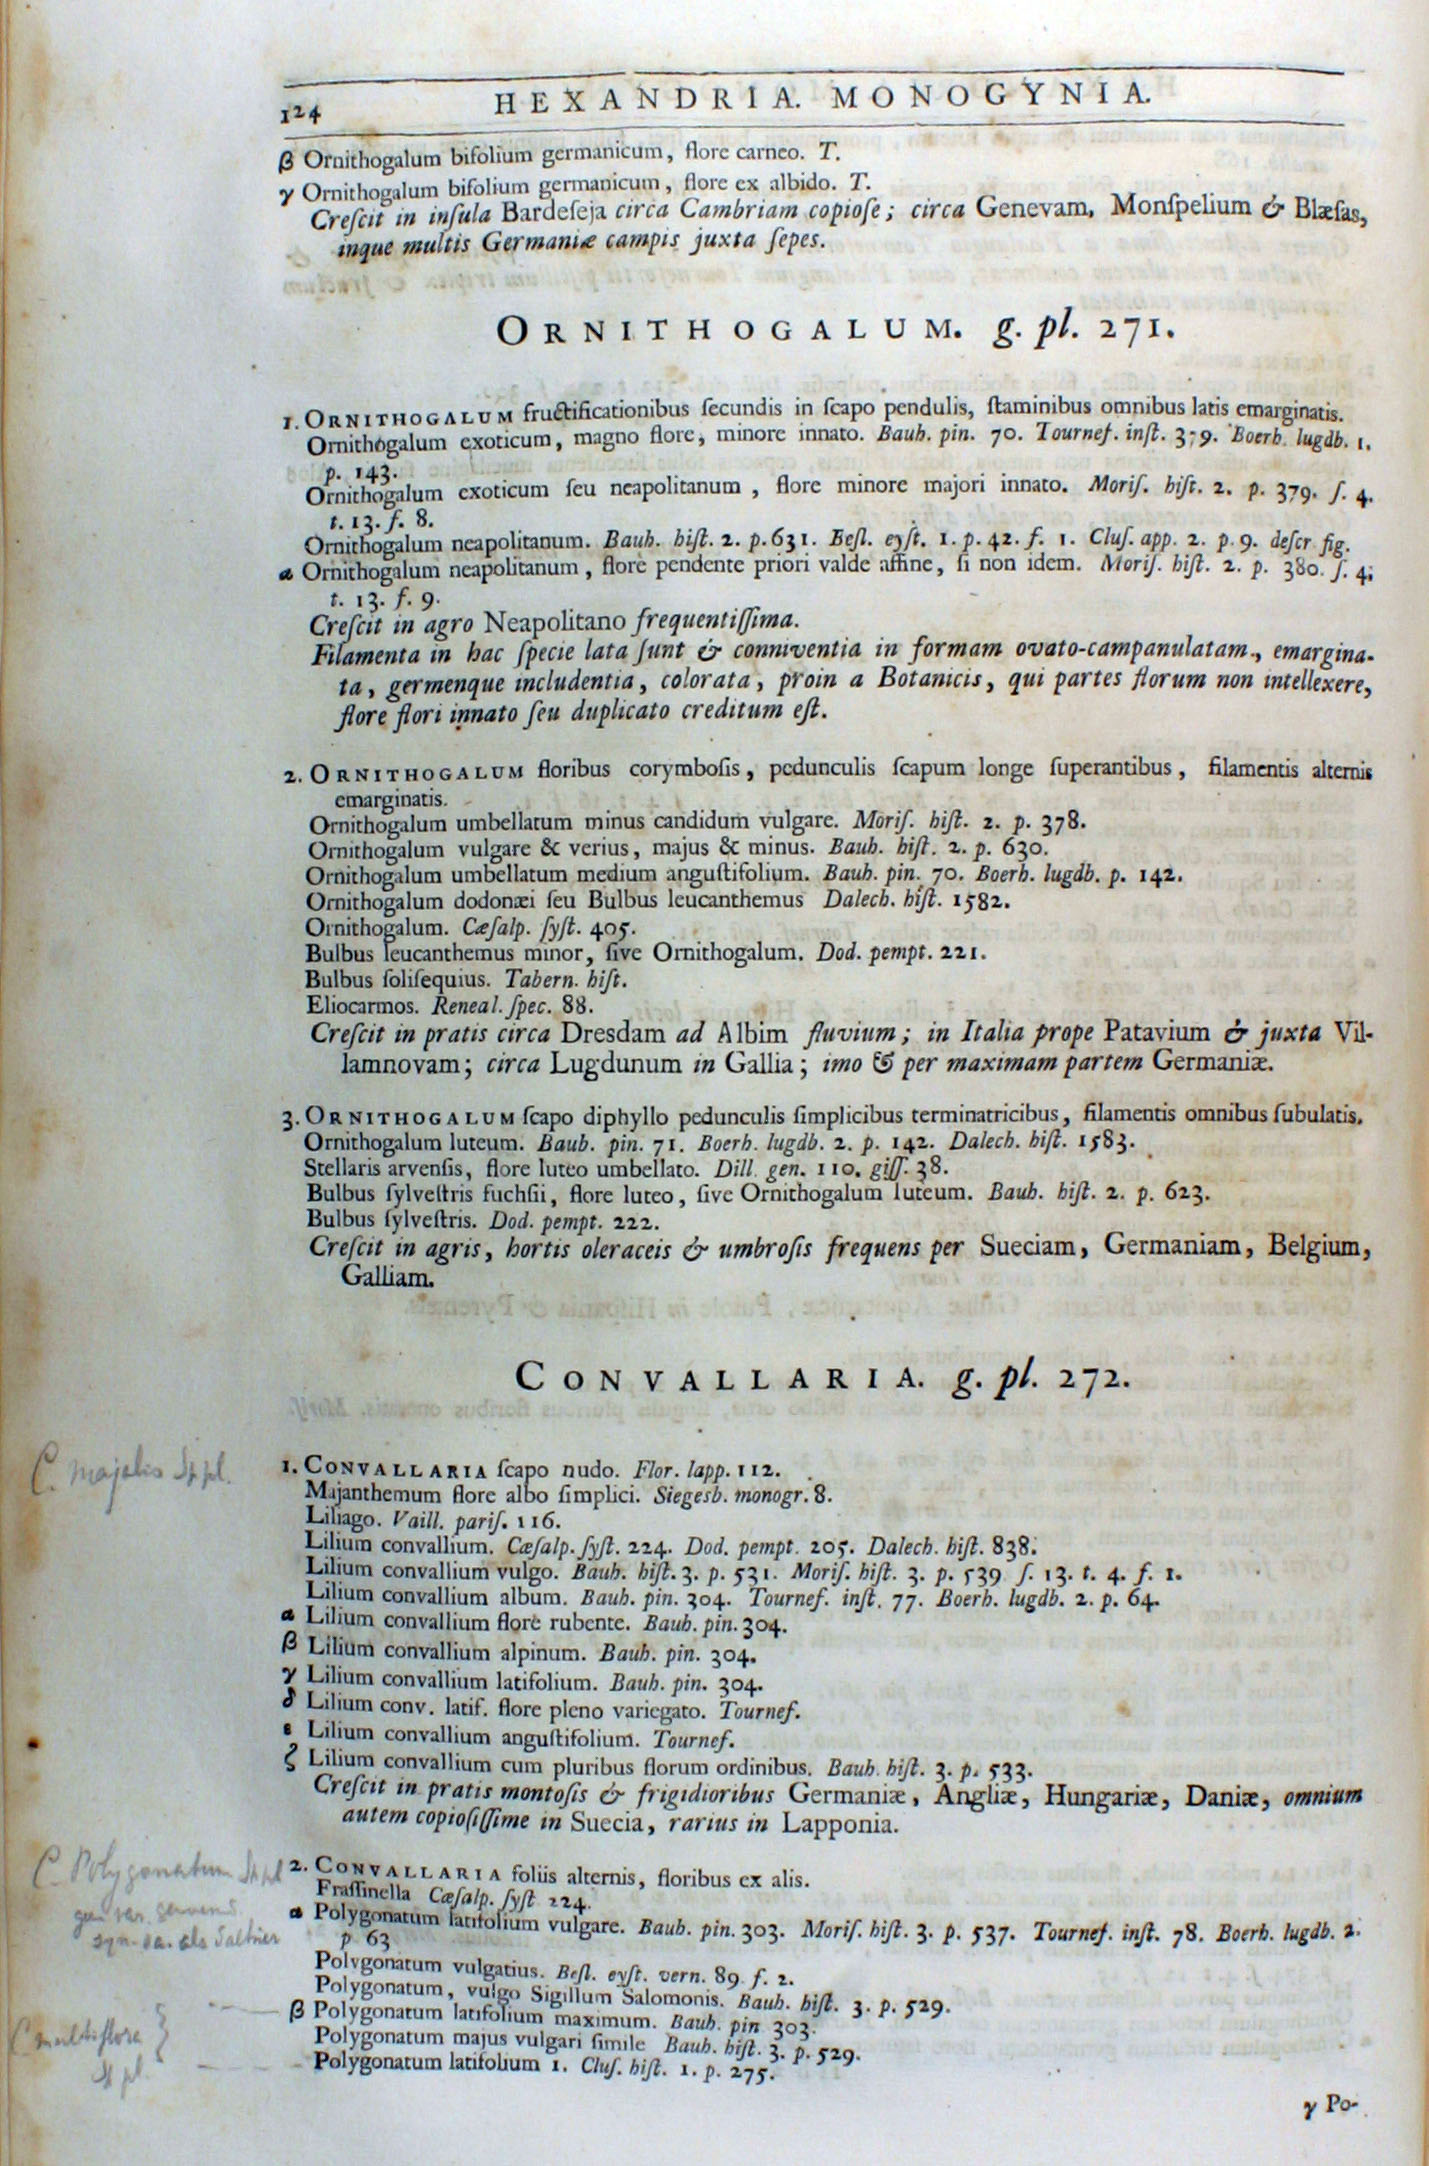 124
HEXANDRIA. MONOGYNIA.
β Ornithogalum bifolium germanicum, flore carneo. T.
γ Ornithogalum bifolium germanicum, flore ex albido. T.
Creſcit in inſula Bardeſeja circa Cambriam copioſe; circa Genevam, Monſpelium & Blæſas,
inque multis Germaniæ campis juxta ſepes.
ORNITHOGALUM. g. pl. 271.
1. ORNITHOGALUM fructificationibus ſecundis in ſcapo pendulis, ſtaminibus omnibus latis emarginatis.
Ornithogalum exoticum, magno flore, minore innato. Bauh. pin. 70. Tournef. inſt. 379. Boerh. lugdb. 1.
p. 143.
Ornithogalum exoticum ſeu neapolitanum, flore minore majori innato. Moriſ. hiſt. 2. p. 379. ſ. 4.
t. 13. f. 8.
Ornithogalum neapolitanum. Bauh. hiſt. 2. p. 631. Beſl. eyſt. 1. p. 42. f. 1. Cluſ. app. 2. p. 9. deſcr fig.
α Ornithogalum neapolitanum, flore pendente priori valde affine, ſi non idem. Moriſ. hiſt. 2. p. 380. ſ. 4.
t. 13. f. 9.
Creſcit in agro Neapolitano frequentiſſima.
Filamenta in hac ſpecie lata ſunt & conniventia in formam ovato-campanulatam, emargina-
ta, germenque includentia, colorata, proin a Botanicis, qui partes florum non intellexere,
flore flori innato ſeu duplicato creditum eſt.
2. ORNITHOGALUM floribus corymboſis, pedunculis ſcapum longe ſuperantibus, filamentis alternis
emarginatis.
Ornithogalum umbellatum minus candidum vulgare. Moriſ. hiſt. 2. p. 378.
Ornithogalum vulgare & verius, majus & minus. Bauh. hiſt. 2. p. 630.
Ornithogalum umbellatum medium anguſtifolium. Bauh. pin. 70. Boerh. lugdb. p. 142.
Ornithogalum dodonæi ſeu Bulbus leucanthemus Dalech. hiſt. 1582.
Ornithogalum. Cæſalp. ſyſt. 405.
Bulbus leucanthemus minor, ſive Ornithogalum. Dod. pempt. 221.
Bulbus ſoliſequius. Tabern. hiſt.
Eliocarmos. Reneal. ſpec. 88.
Creſcit in pratis circa Dresdam ad Albim fluvium; in Italia prope Patavium & juxta Vil-
lamnovam; circa Lugdunum in Gallia; imo & per maximam partem Germaniæ.
3. ORNITHOGALUM ſcapo diphyllo pedunculis ſimplicibus terminatricibus, filamentis omnibus ſubulatis.
Ornithogalum luteum. Bauh. pin. 71. Boerh. lugdb. 2. p. 142. Dalech. hiſt. 1583.
Stellaris arvenſis, flore luteo umbellato. Dill. gen. 110. giſſ. 38.
Bulbus ſylveſtris fuchſii, flore luteo, ſive Ornithogalum luteum. Bauh. hiſt. 2. p. 623.
Bulbus ſylveſtris. Dod. pempt. 222.
Creſcit in agris, hortis oleraceis & umbroſis frequens per Sueciam, Germaniam, Belgium,
Galliam.
CONVALLARIA. g. pl. 272.
C. majalis Sp pl.
1. CONVALLARIA ſcapo nudo. Flor. lapp. 112.
Majanthemum flore albo ſimplici. Siegesb. monogr. 8.
Liliago. Vaill. pariſ. 116.
Lilium convallium. Cæſalp. ſyſt. 224. Dod. pempt. 205. Dalech. hiſt. 838.
Lilium convallium vulgo. Bauh. hiſt. 3. p. 531. Moriſ. hiſt. 3. p. 539 ſ. 13. t. 4. f. 1.
Lilium convallium album. Bauh. pin. 304. Tournef. inſt. 77. Boerh. lugdb. 2. p. 64.
α Lilium convallium flore rubente. Bauh. pin. 304.
β Lilium convallium alpinum. Bauh. pin. 304.
γ Lilium convallium latifolium. Bauh. pin. 304.
δ Lilium conv. latif. flore pleno variegato. Tournef.
ε Lilium convallium anguſtifolium. Tournef.
ζ Lilium convallium cum pluribus florum ordinibus. Bauh. hiſt. 3. p. 533.
Creſcit in pratis montoſis & frigidioribus Germaniæ, Angliæ, Hungariæ, Daniæ, omnium
autem copioſiſſime in Suecia, rarius in Lapponia.
C. Polygonatum Sp pl
2. CONVALLARIA foliis alternis, floribus ex alis.
Fraſſinella Cæſalp. ſyſt 224.
α Polygonatum latifolium vulgare. Bauh. pin. 303. Moriſ. hiſt. 3. p. 537. Tournef. inſt. 78. Boerh. lugdb. 2.
p 63
Polygonatum vulgatius. Beſl. eyſt. vern. 89 f. 2.
Polygonatum, vulgo Sigillum Salomonis. Bauh. hiſt. 3. p. 529.
β Polygonatum latifolium maximum. Bauh. pin 303.
C multiflora
Sp pl.
Polygonatum majus vulgari ſimile Bauh. hiſt. 3. p. 529.
Polygonatum latifolium 1. Cluſ. hiſt. 1. p. 275.
γ Po-